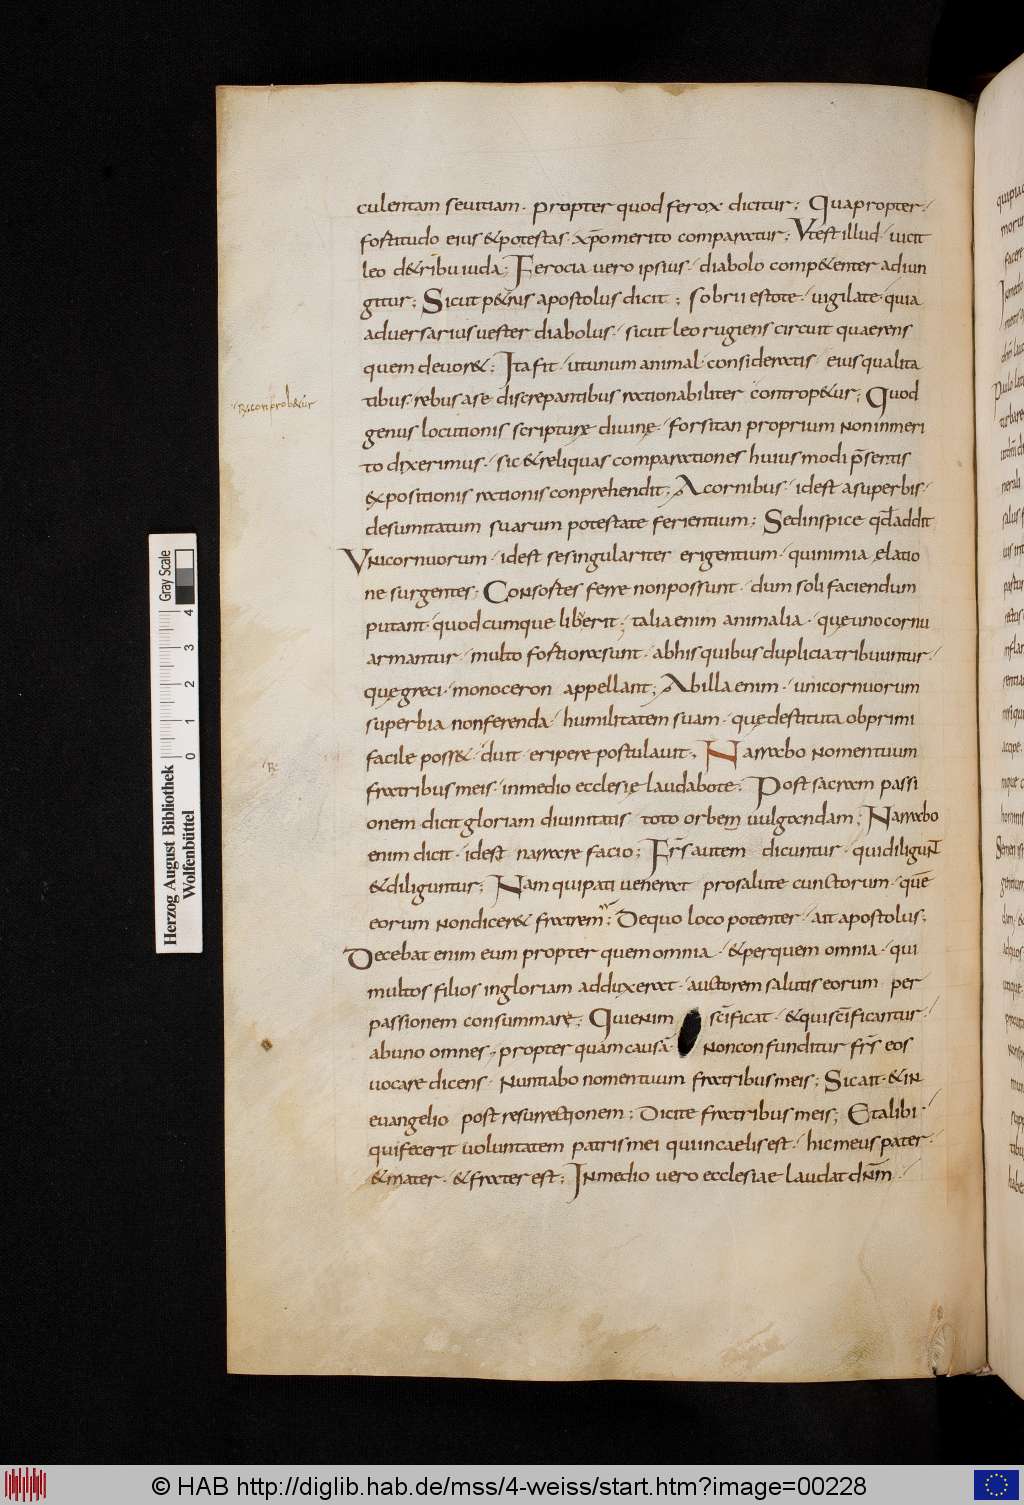 culentam seuitiam. propter quod ferox dicitur; Quapropter
fortitudo eius &potestas xp̄o merito comparatur; Vt est illud uicit
leo d& ribu iuda; Ferocia uero ipsius diabolo comp&enter adiun
gitur; Sicut p&rus apostolus dicit; sobrii estote uigilate quia
aduersarius uester diabolus sicut leo rugiens circuit quaerens
quem deuor&; Ita fit ut unum animal consideratis eius qualita
tibus rebus a se discrepantibus rationabiliter controp&ur; Quod
genus locutionis scripturę diuinę forsitan proprium non inmeri
to dixerimus. sic & reliquas comparationes huiusmodi p̄sentis
expositionis rationis conprehendit; A cornibus idest a superbis
desumitatum suarum potestate ferientium; Sed inspice qd̄ addit
Vnicornuorum idest se singulariter erigentium. quinimia elatio
ne surgentes; Consortes ferre non possunt dum soli faciendum
putant quodcumque liberit; talia enim animalia quę uno cornu
armantur multo fortiora sunt ab his quibus duplicia tribuuntur
quę greci monoceron appellant; Ab illa enim unicornuorum
superbia non ferenda humilitatem suam quę destituta obprimi
facile poss& diuit eripere postulauit; Narrabo nomen tuum
fratribus meis in medio ecclesię laudabo te; Post sacram passi
onem dicit gloriam diuinitatis toto orbem uulgandam; Narrabo
enim dicit idest narrare facio; Frs̄ autem dicuntur qui diligunt
& diliguntur; Nam qui pati uenerat pro salute cunctorum quē
eorum non dicer& fratrem; De quo loco potenter ait apostolus;
Decebat enim eum propter quem omnia &per quem omnia qui
multos filios in gloriam adduxerat auctorem salutis eorum per
passionem consummare; Qui enim sc̄ificat & qui sc̄ificantur
ab uno omnes, propter quam causā non confunditur frs̄ eos
uocare dicens Nuntiabo nomen tuum fratribus meis; Sic ait & in
euangelio post resurrectionem; Dicite fratribus meis; Et alibi
qui fecerit uoluntatem patris mei qui in caelis est hic meus pater
& mater & frater est; In medio uero ecclesiae laudat dn̄m
conprob&ur
Herzog August Bibliothek
Wolfenbüttel
0 1 2 3 4
Gray Scale
© HAB http://diglib.hab.de/mss/4-weiss/start.htm?image=00228